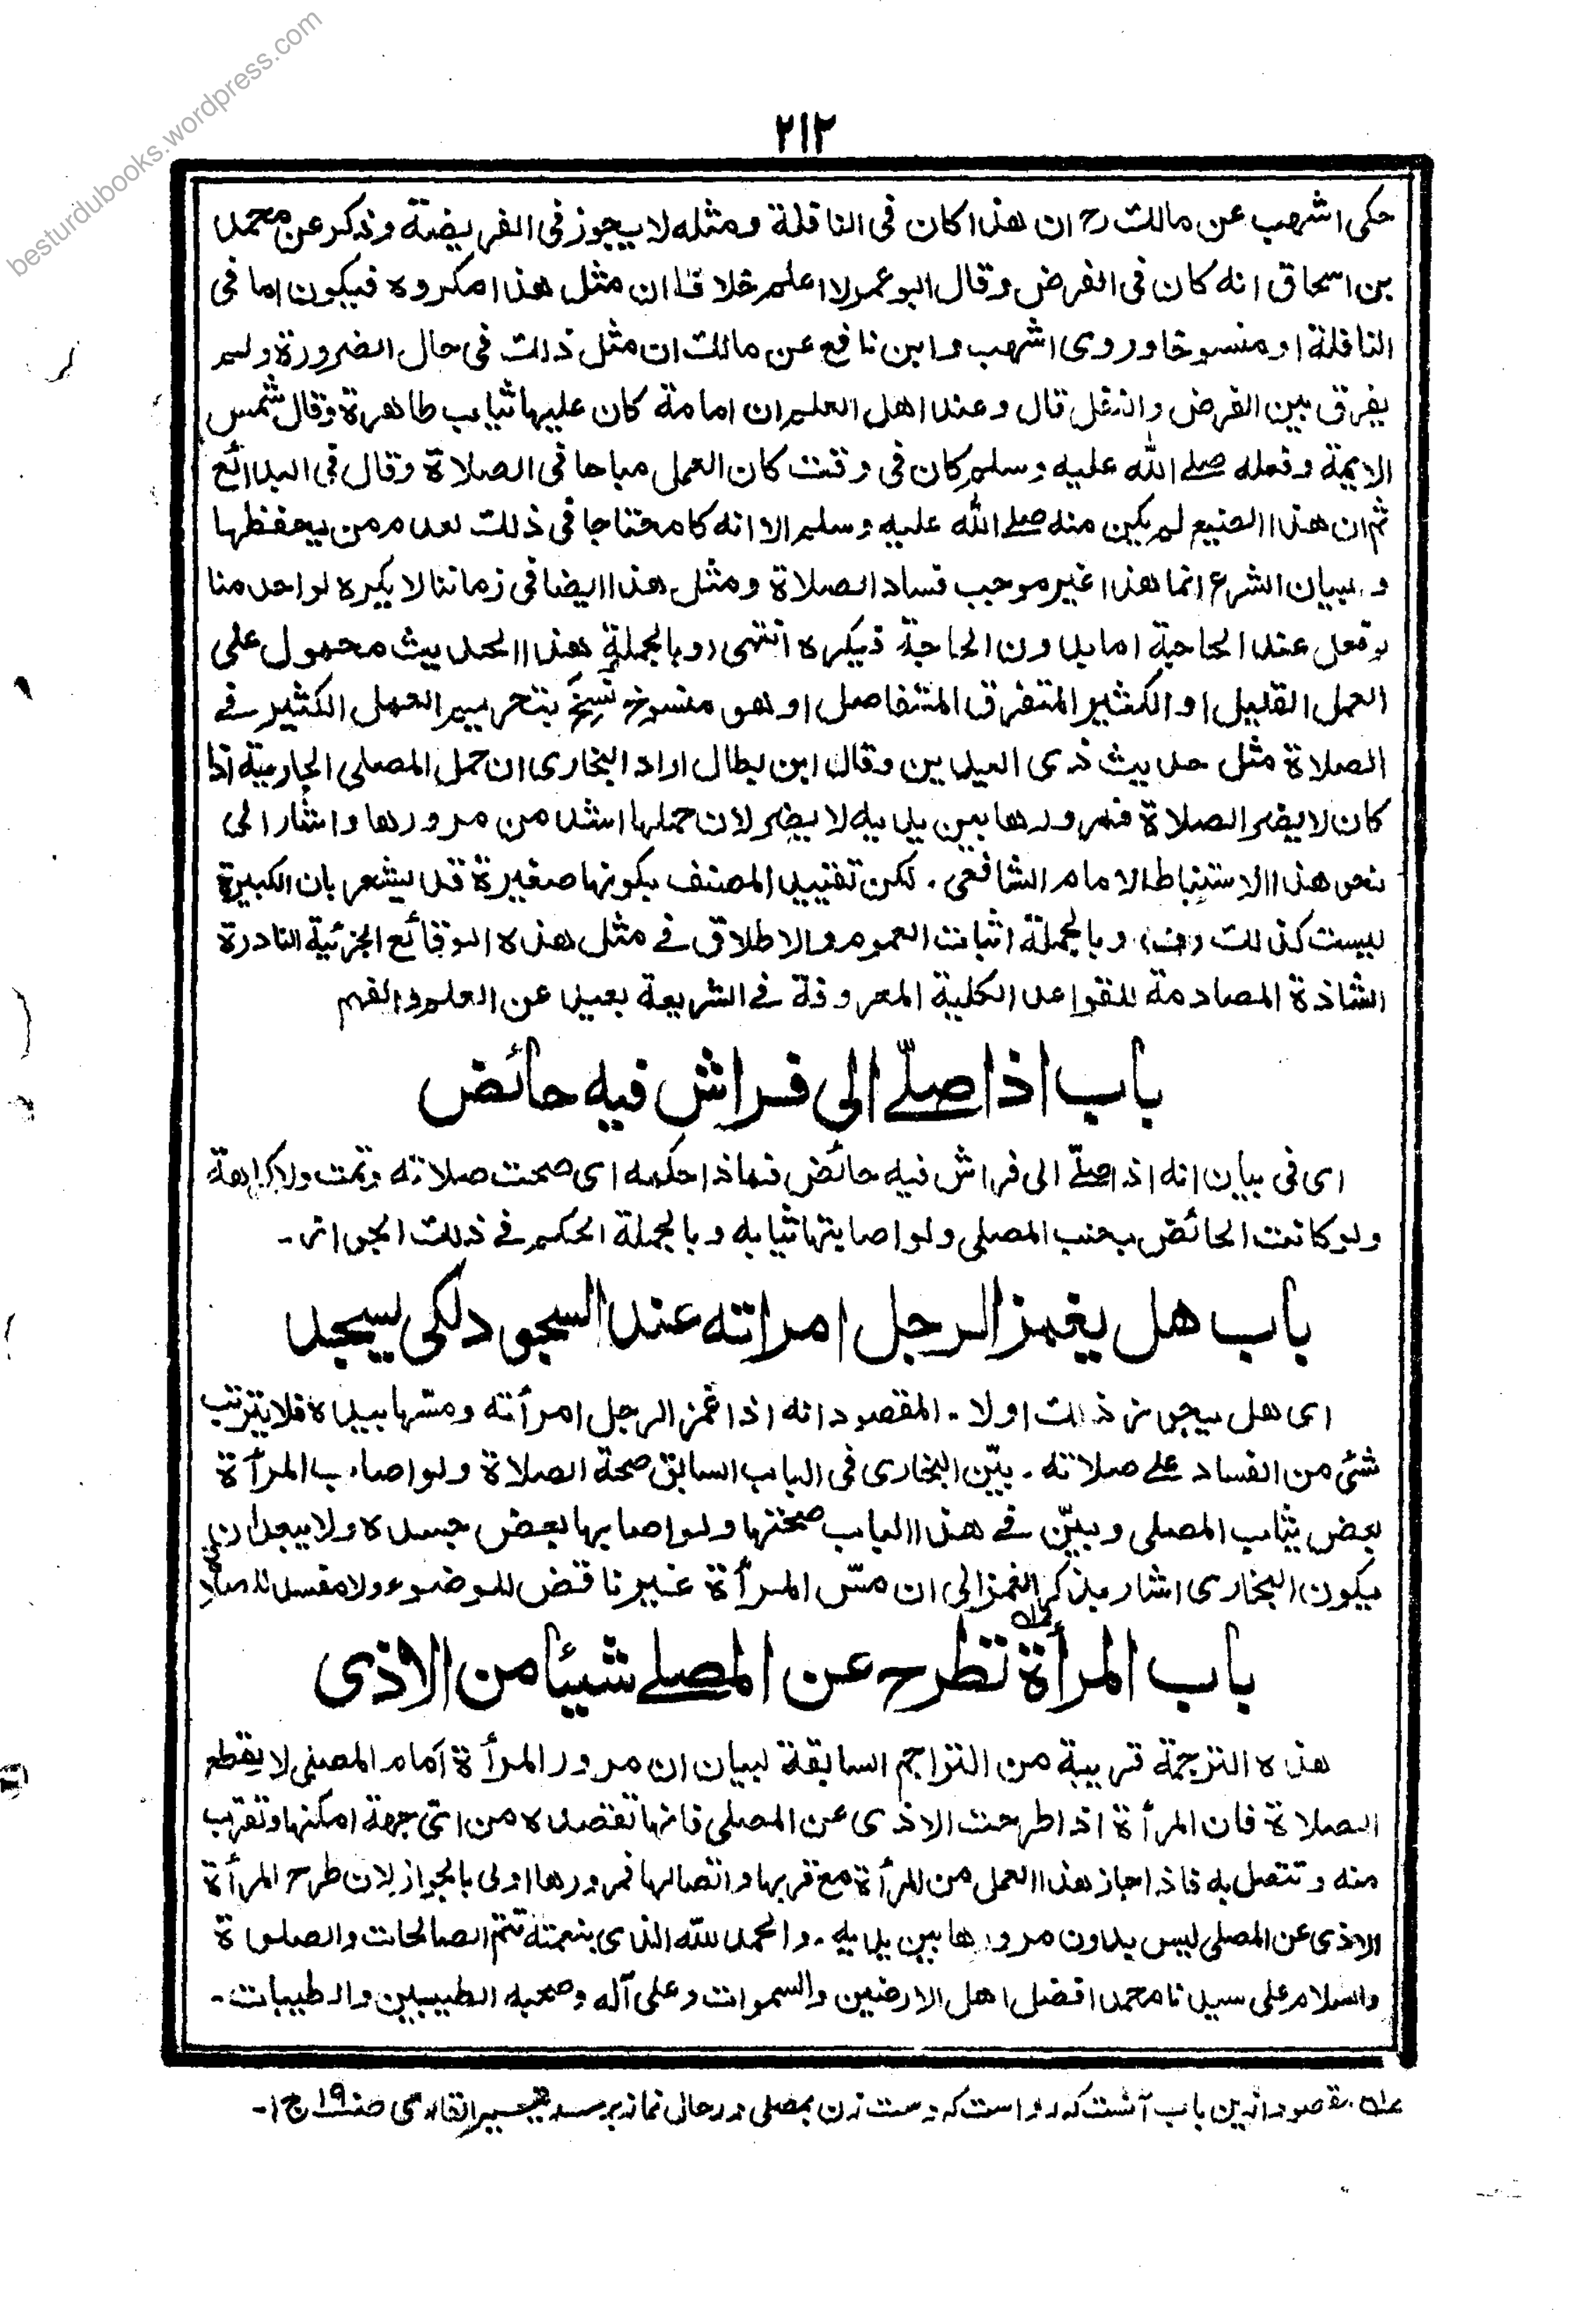 besturdubooks.wordpress.com
٢١٢
حكى اشهب عن مالك رح ان هذا كان فى النافلة ومثله لا يجوز فى الفريضة وذكر عن محمد
بن اسحاق انه كان فى الفرض وقال ابو عمر لا اعلم خلافا ان مثل هذا مكروه فيكون اما فى
النافلة او منسوخا وروى اشهب وابن نافع عن مالك ان مثل ذلك فى حال الضرورة ولم
يفرق بين الفرض والنفل قال وعند اهل العلم ان امامة كان عليها ثياب طاهرة وقال شمس
الايمة وفعله صلے الله عليه وسلم كان فى وقت كان العمل مباحا فى الصلاة وقال فى البدائع
ثم ان هذا الصنيع لم يكن منه صلے الله عليه وسلم الا انه كا محتاجا فى ذلك لعدم من يحفظها
و لبيان الشرع انما هذا غير موجب فساد الصلاة ومثل هذا ايضا فى زماننا لا يكره لواحد منا
لو فعل عند الحاجة اما بدون الحاجة فيكره انتهى وبالجملة هذا الحديث محمول على
العمل القليل او الكثير المتفرق المتفاصل او هو منسوخ نسخ بتحريم العمل الكثير فے
الصلاة مثل حديث ذى اليدين وقال ابن بطال اراد البخارى ان حمل المصلى الجارية اذا
كان لا يضر الصلاة فمرورها بين يديه لا يضر لان حملها اشد من مرورها واشار الى
نحو هذا الاستنباط الامام الشافعى . لكن تقييد المصنف بكونها صغيرة قد يشعر بان الكبيرة
ليست كذلك (فت) وبالجملة اثبات العموم والاطلاق فے مثل هذه الوقائع الجزئية النادرة
الشاذة المصادمة للقواعد الكلية المعروفة فے الشريعة بعيد عن العلم والفهم
باب اذا صلّے الى فراش فيه حائض
اى فى بيان انه اذا صلّے الى فراش فيه حائض فماذا حكمه اى صحت صلاته وتمت ولا كراهة
ولو كانت الحائض بجنب المصلى ولو اصابتها ثيابه وبالجملة الحكم فے ذلك الجواز -
باب هل يغمز الرجل امراته عند السجود لكى يسجد
اى هل يجوز ذلك اولا - المقصود انه اذا غمز الرجل امرأته ومسّها بيده فلا يترتب
شئ من الفساد علے صلاته . بيّن البخارى فى الباب السابق صحة الصلاة ولو اصاب المرأة
بعض ثياب المصلى وبيّن فے هذا الباب صحتها ولو اصابها بعض جسده ولا يبعد ان
يكون البخارى اشار بذكر الغمز الى ان مسّ المرأة غير ناقض للوضوء ولا مفسد للصلاة
باب المرأة تطرح عن المصلے شيئا من الاذى
هذه الترجمة قريبة من التراجم السابقة لبيان ان مرور المرأة امام المصلى لا يقطع
الصلاة فان المرأة اذا طرحت الاذى عن المصلى فانها تقصده من اىّ جهة امكنها وتقرب
منه وتتصل به فاذا جاز هذا العمل من المرأة مع قربها واتصالها فمرورها اولى بالجواز لان طرح المرأة
الاذى عن المصلى ليس بدون مرورها بين يديه . والحمد لله الذى بنعمته تتم الصالحات والصلوة
والسلام على سيدنا محمد افضل اهل الارضين والسموات وعلى آله وصحبه الطيبين والطيبات -
عـ۱ـه مقصود ازين باب آنست كه روا است كه دست زن بمصلى در حال نماز برسد تيسير القارى صفت ١٩ ج ١ -